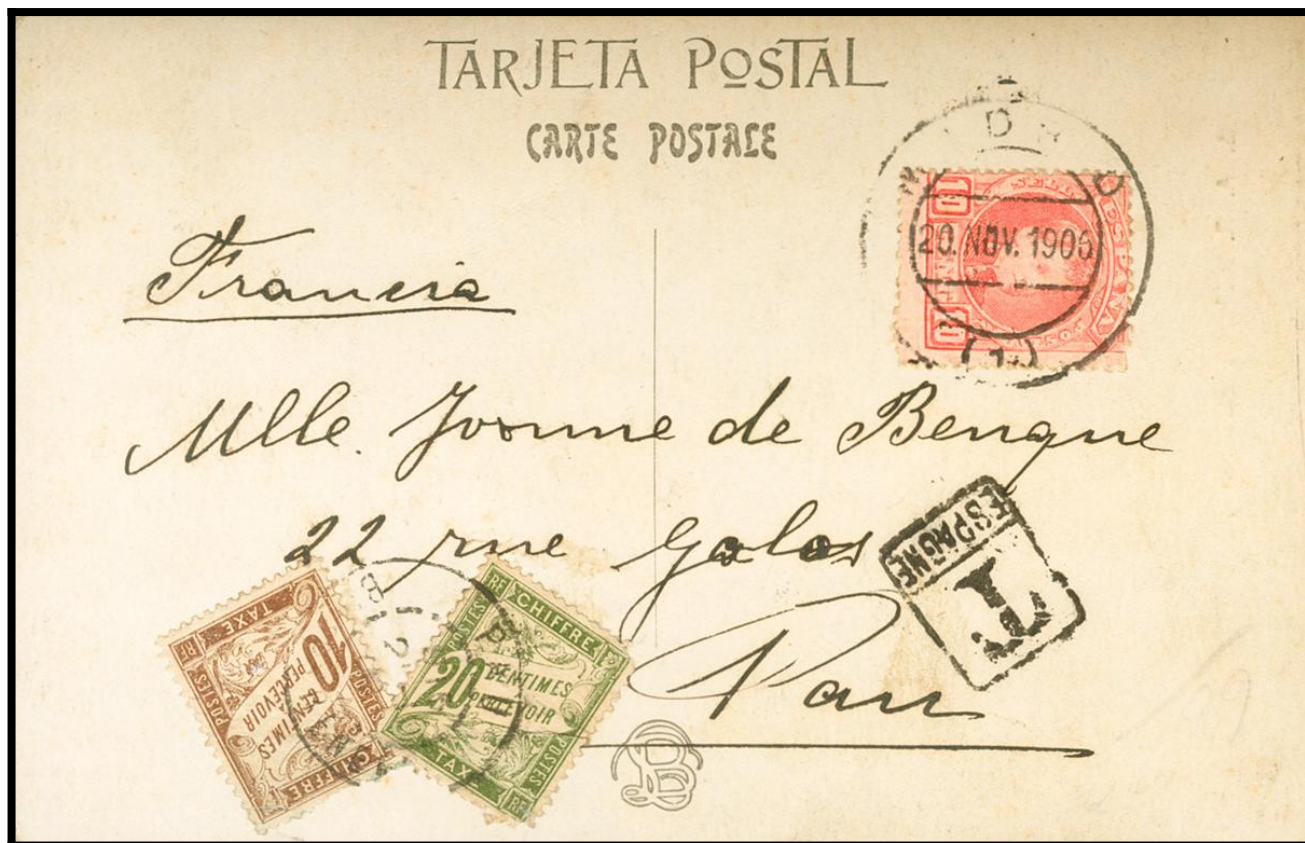 TARJETA POSTAL
CARTE POSTALE
20. NOV. 1906
(1)
Francia
Mlle. Yvonne de Bengue
22 rue Galos
Pau
ESPAGNE
T
POSTES
RF
TAXE
10
CENTIMES
PERCEVOIR
CHIFFRE
POSTES
RF
CHIFFRE
20 CENTIMES
PERCEVOIR
TAXE
POSTES
RF